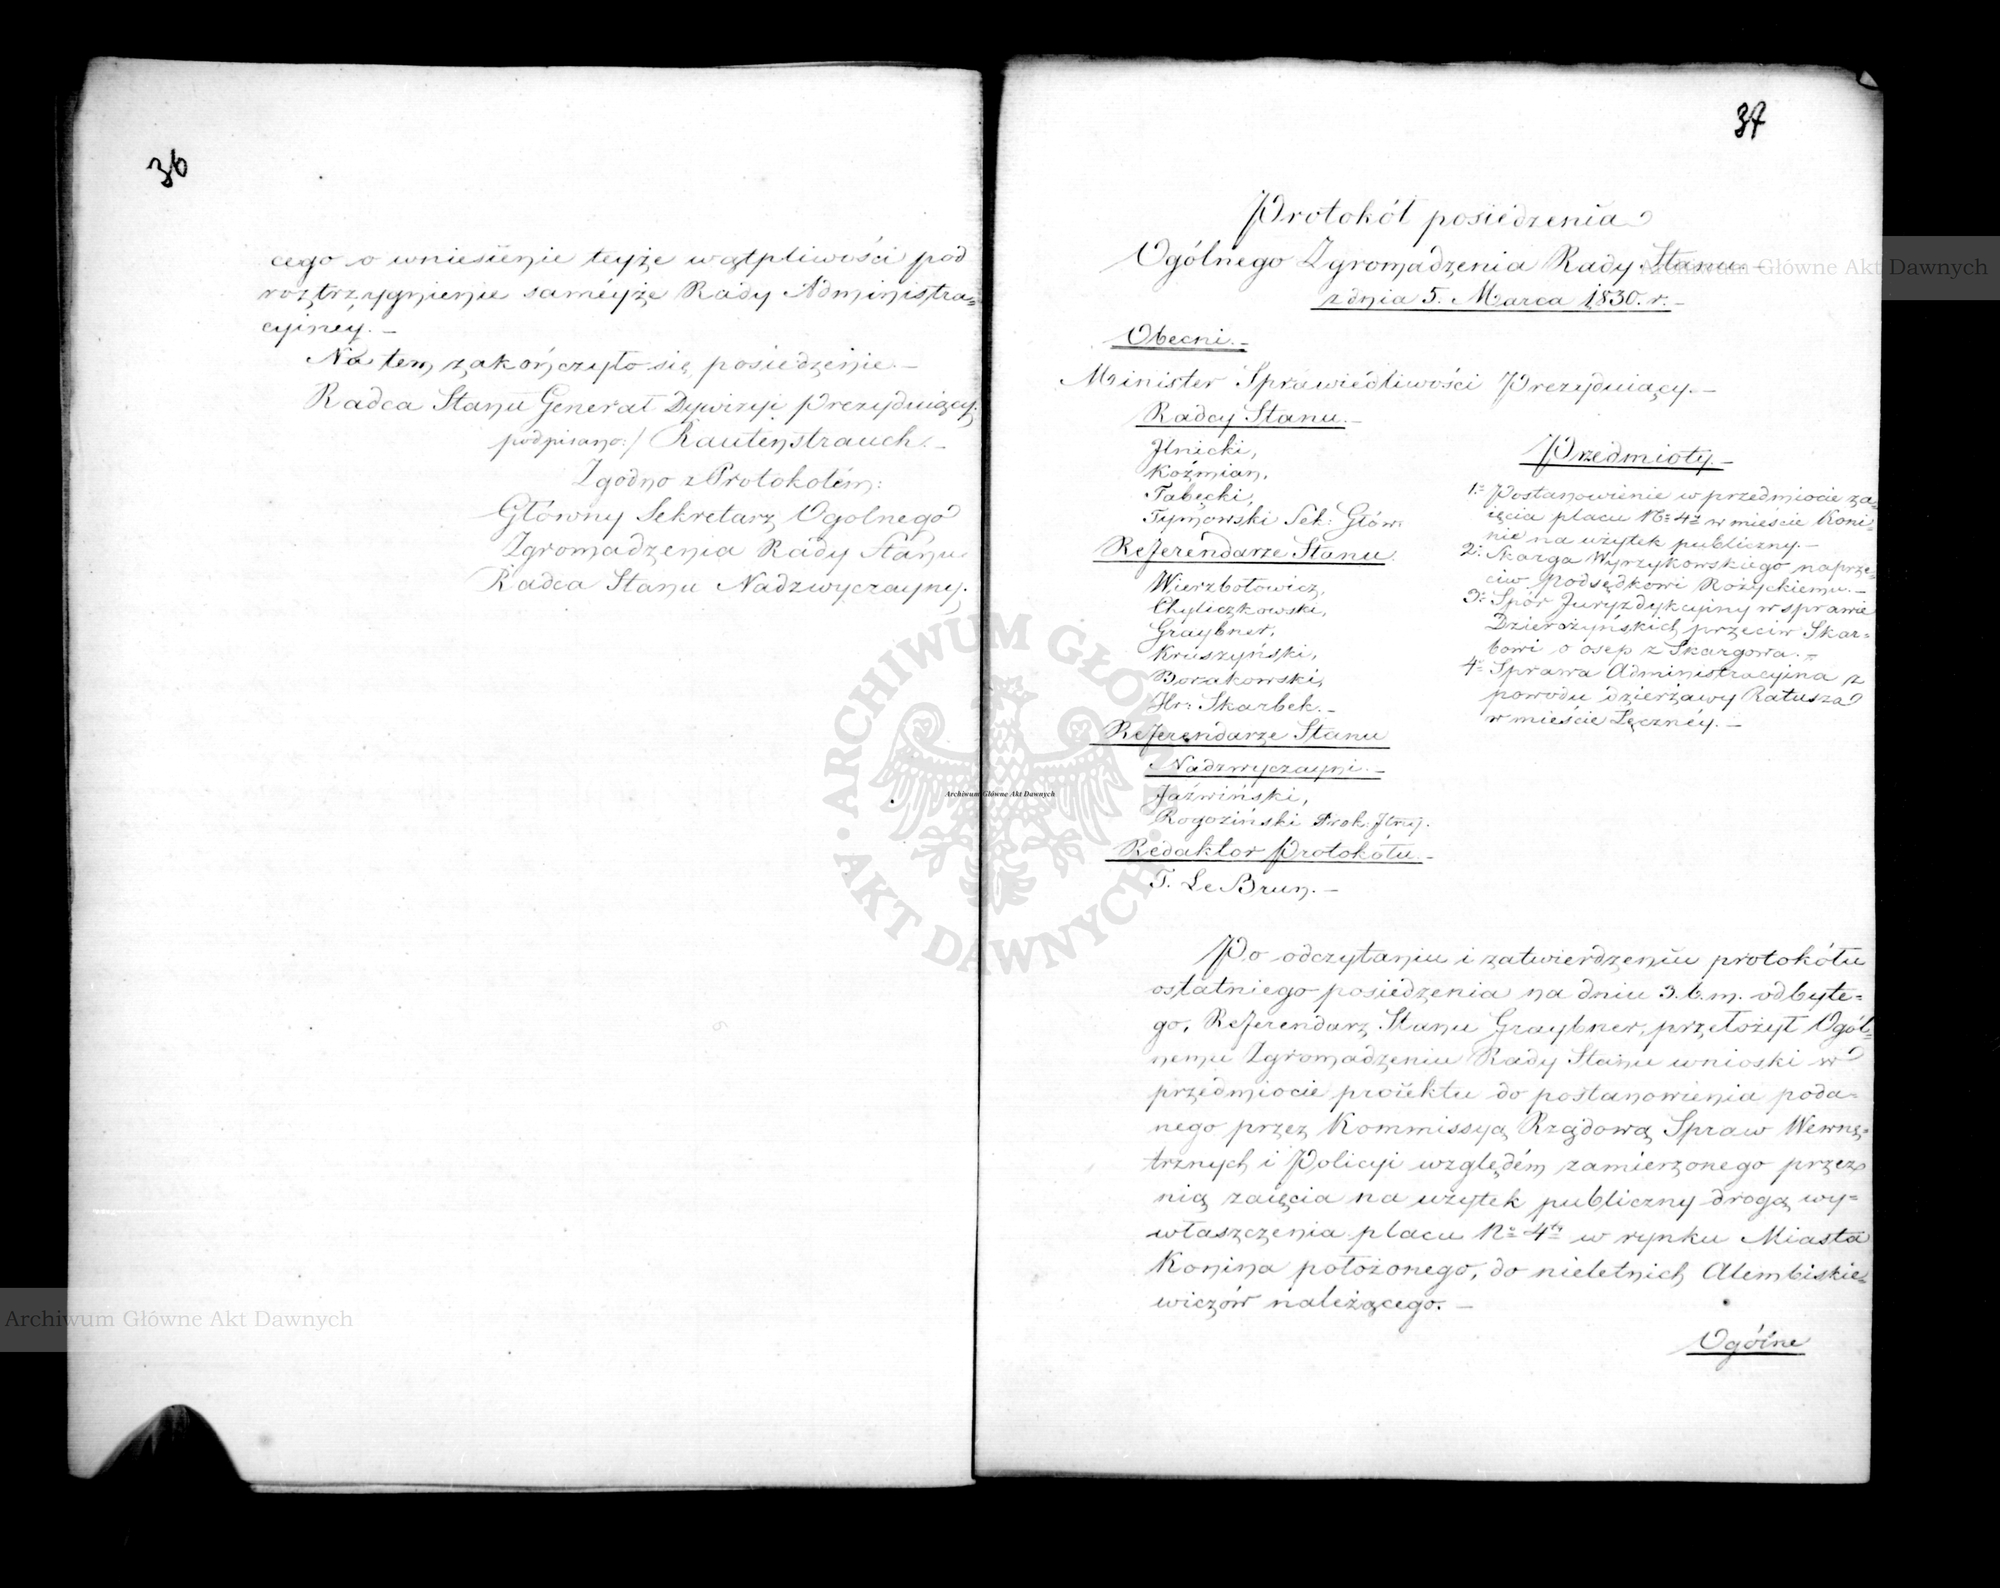 36
cego o wniesienie teyże wątpliwości pod
roztrzygnienie saméyże Rady Administra=
cyinéy. –
Na tem zakończyło się posiedzenie –
Radca Stanu Generał Dywizyi Prezyduiący.
podpisano:/ Rautenstrauch. –
Zgodno z Protokołem:
Główny Sekretarz Ogolnego
Zgromadzenia Rady Stanu
Radca Stanu Nadzwyczayny.
37
Protokół posiedzenia
Ogólnego Zgromadzenia Rady Stanu. –
z dnia 5. Marca 1830. r. –
Obecni. –
Minister Sprawiedliwości Prezyduiący. –
Radcy Stanu. –
Jlnicki,
Koźmian,
Tabęcki,
Tymowski Sek: Głów:
Referendarze Stanu
Wierzbołowicz,
Chyliczkowski,
Graybner,
Kruszyński,
Borakowski,
Hr: Skarbek. –
Referendarze Stanu
Nadzwyczayni. –
Jaźwiński,
Rogoziński Prok: Jlny.
Redaktor Protokółu. –
T. Le Brun. –
Przedmioty. –
1: Postanowienie w przedmiocie za=
ięcia placu No 4 w mieście Koni=
nie na użytek publiczny. –
2: Skarga Wyrzykowskiego naprze=
ciw Podsędkowi Rożyckiemu. –
3: Spór Juryzdykcyiny w sprawie
Dzierżyńskich przeciw Skar=
bowi o osep z Skargowa. –
4: Sprawa Administracyina z
powodu dzierżawy Ratusza
w mieście Łęcznéy. –
Po odczytaniu i zatwierdzeniu protokółu
ostatniego posiedzenia na dniu 3. b. m. odbyte=
go, Referendarz Stanu Graybner, przełożył Ogól=
nemu Zgromadzeniu Rady Stanu wnioski w
przedmiocie proiektu do postanowienia poda=
nego przez Kommissyą Rządową Spraw Wewnę=
trznych i Policyi względem zamierzonego przez
nią zaięcia na użytek publiczny drogą wy=
właszczenia placu No 4ty w rynku Miasta
Konina położonego, do nieletnich Alembiskie=
wiczów należącego. –
Ogólne
Archiwum Główne Akt Dawnych
ARCHIWUM GŁÓWNE AKT DAWNYCH
Archiwum Główne Akt Dawnych
Archiwum Główne Akt Dawnych